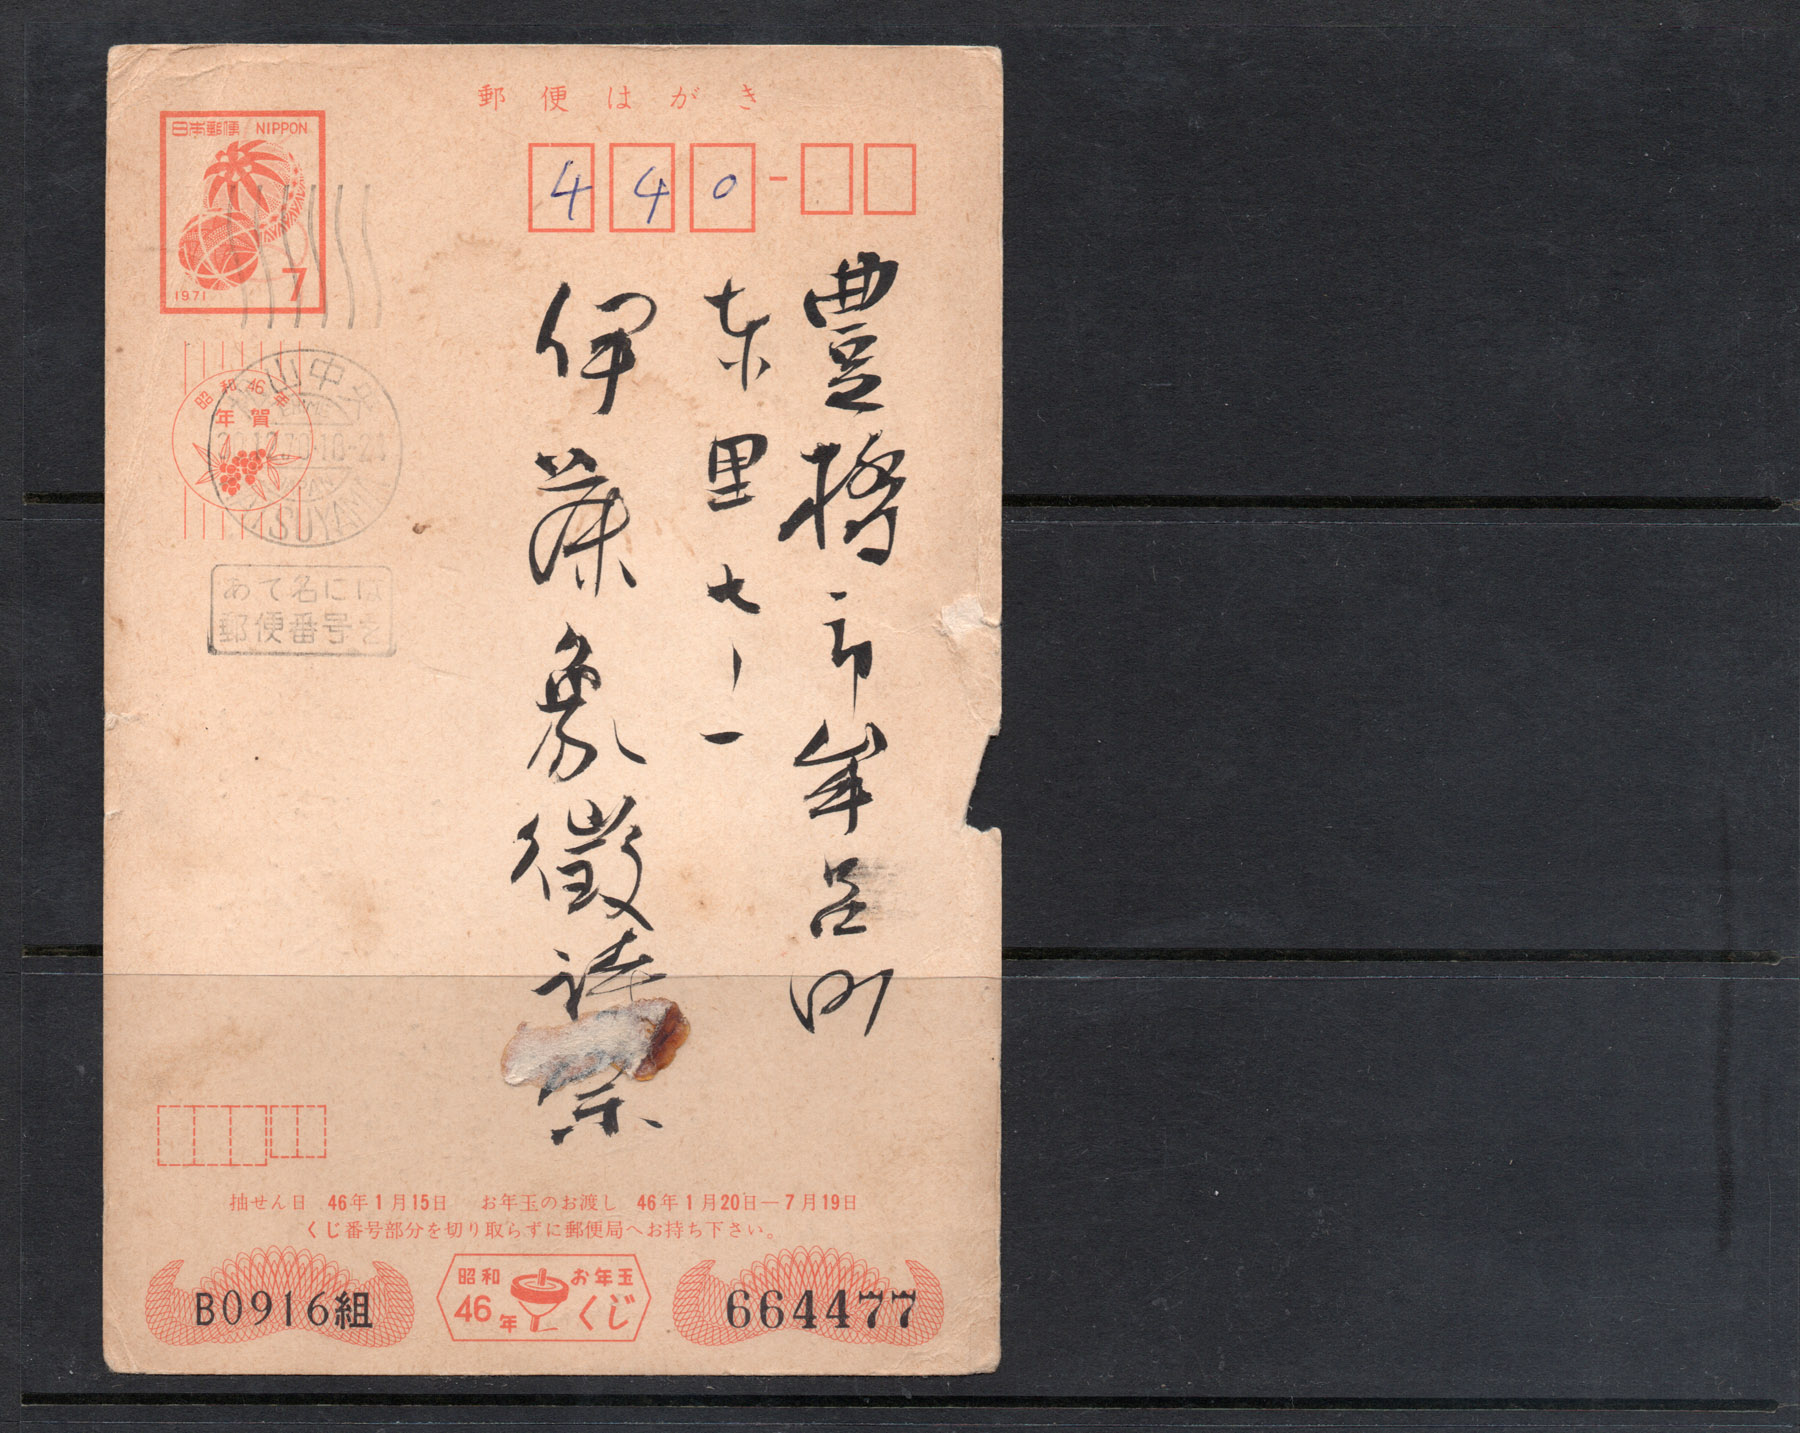 郵便はがき
日本郵便 NIPPON
1971 7
440
豊橋市牟呂町
東里七ノ一
伊藤象徴様
昭和46
年賀
松山中央
EHIME
30.12.70.18-24
JAPAN
MATSUYAMA
あて名には
郵便番号を
抽せん日 46年1月15日 お年玉のお渡し 46年1月20日—7月19日
くじ番号部分を切り取らずに郵便局へお持ち下さい。
B0916組
昭和46年 お年玉くじ
664477